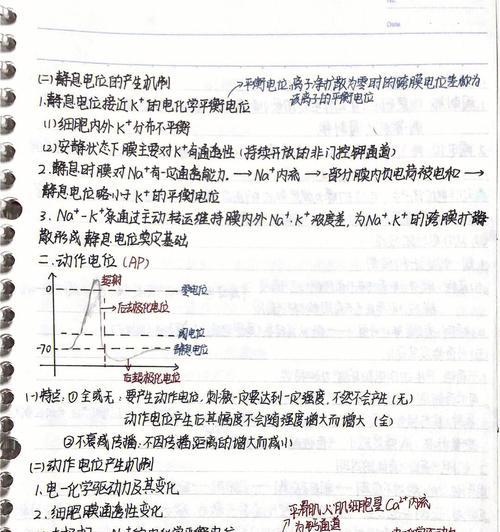 No.
Date
(二)静息电位的产生机制
→平衡电位:离子净扩散为零时的跨膜电位差称为
该离子的平衡电位
1.静息电位接近K⁺的电化学平衡电位
(1)细胞内外K⁺分布不平衡
(2)安静状态下膜主要对K⁺有通透性(持续开放的非门控钾通道)
2.静息时膜对Na⁺有一定通透能力.→Na⁺内流→一部分膜内负电荷被中和→
静息电位略小于K⁺的平衡电位
3.Na⁺-K⁺泵通过主动转运维持膜内外Na⁺.K⁺浓度差,为Na⁺.K⁺的跨膜扩
散形成静息电位奠定基础
二.动作电位(AP)
超射
0
零电位
后去极化电位
阈电位
-70
静息电位
后超极化电位
(一)特点:①全或无:要产生动作电位,刺激一定要达到一定强度,不然不会产生(无)
动作电位产生后其幅度不会随强度增大而增大(全)
②不衰减传播:不因传播距离的增大而减小
(二)动作电位产生机制
1.电-化学驱动力及其变化
2.细胞膜通透性变化
平滑肌心肌细胞是Ca²⁺内流
为钙通道